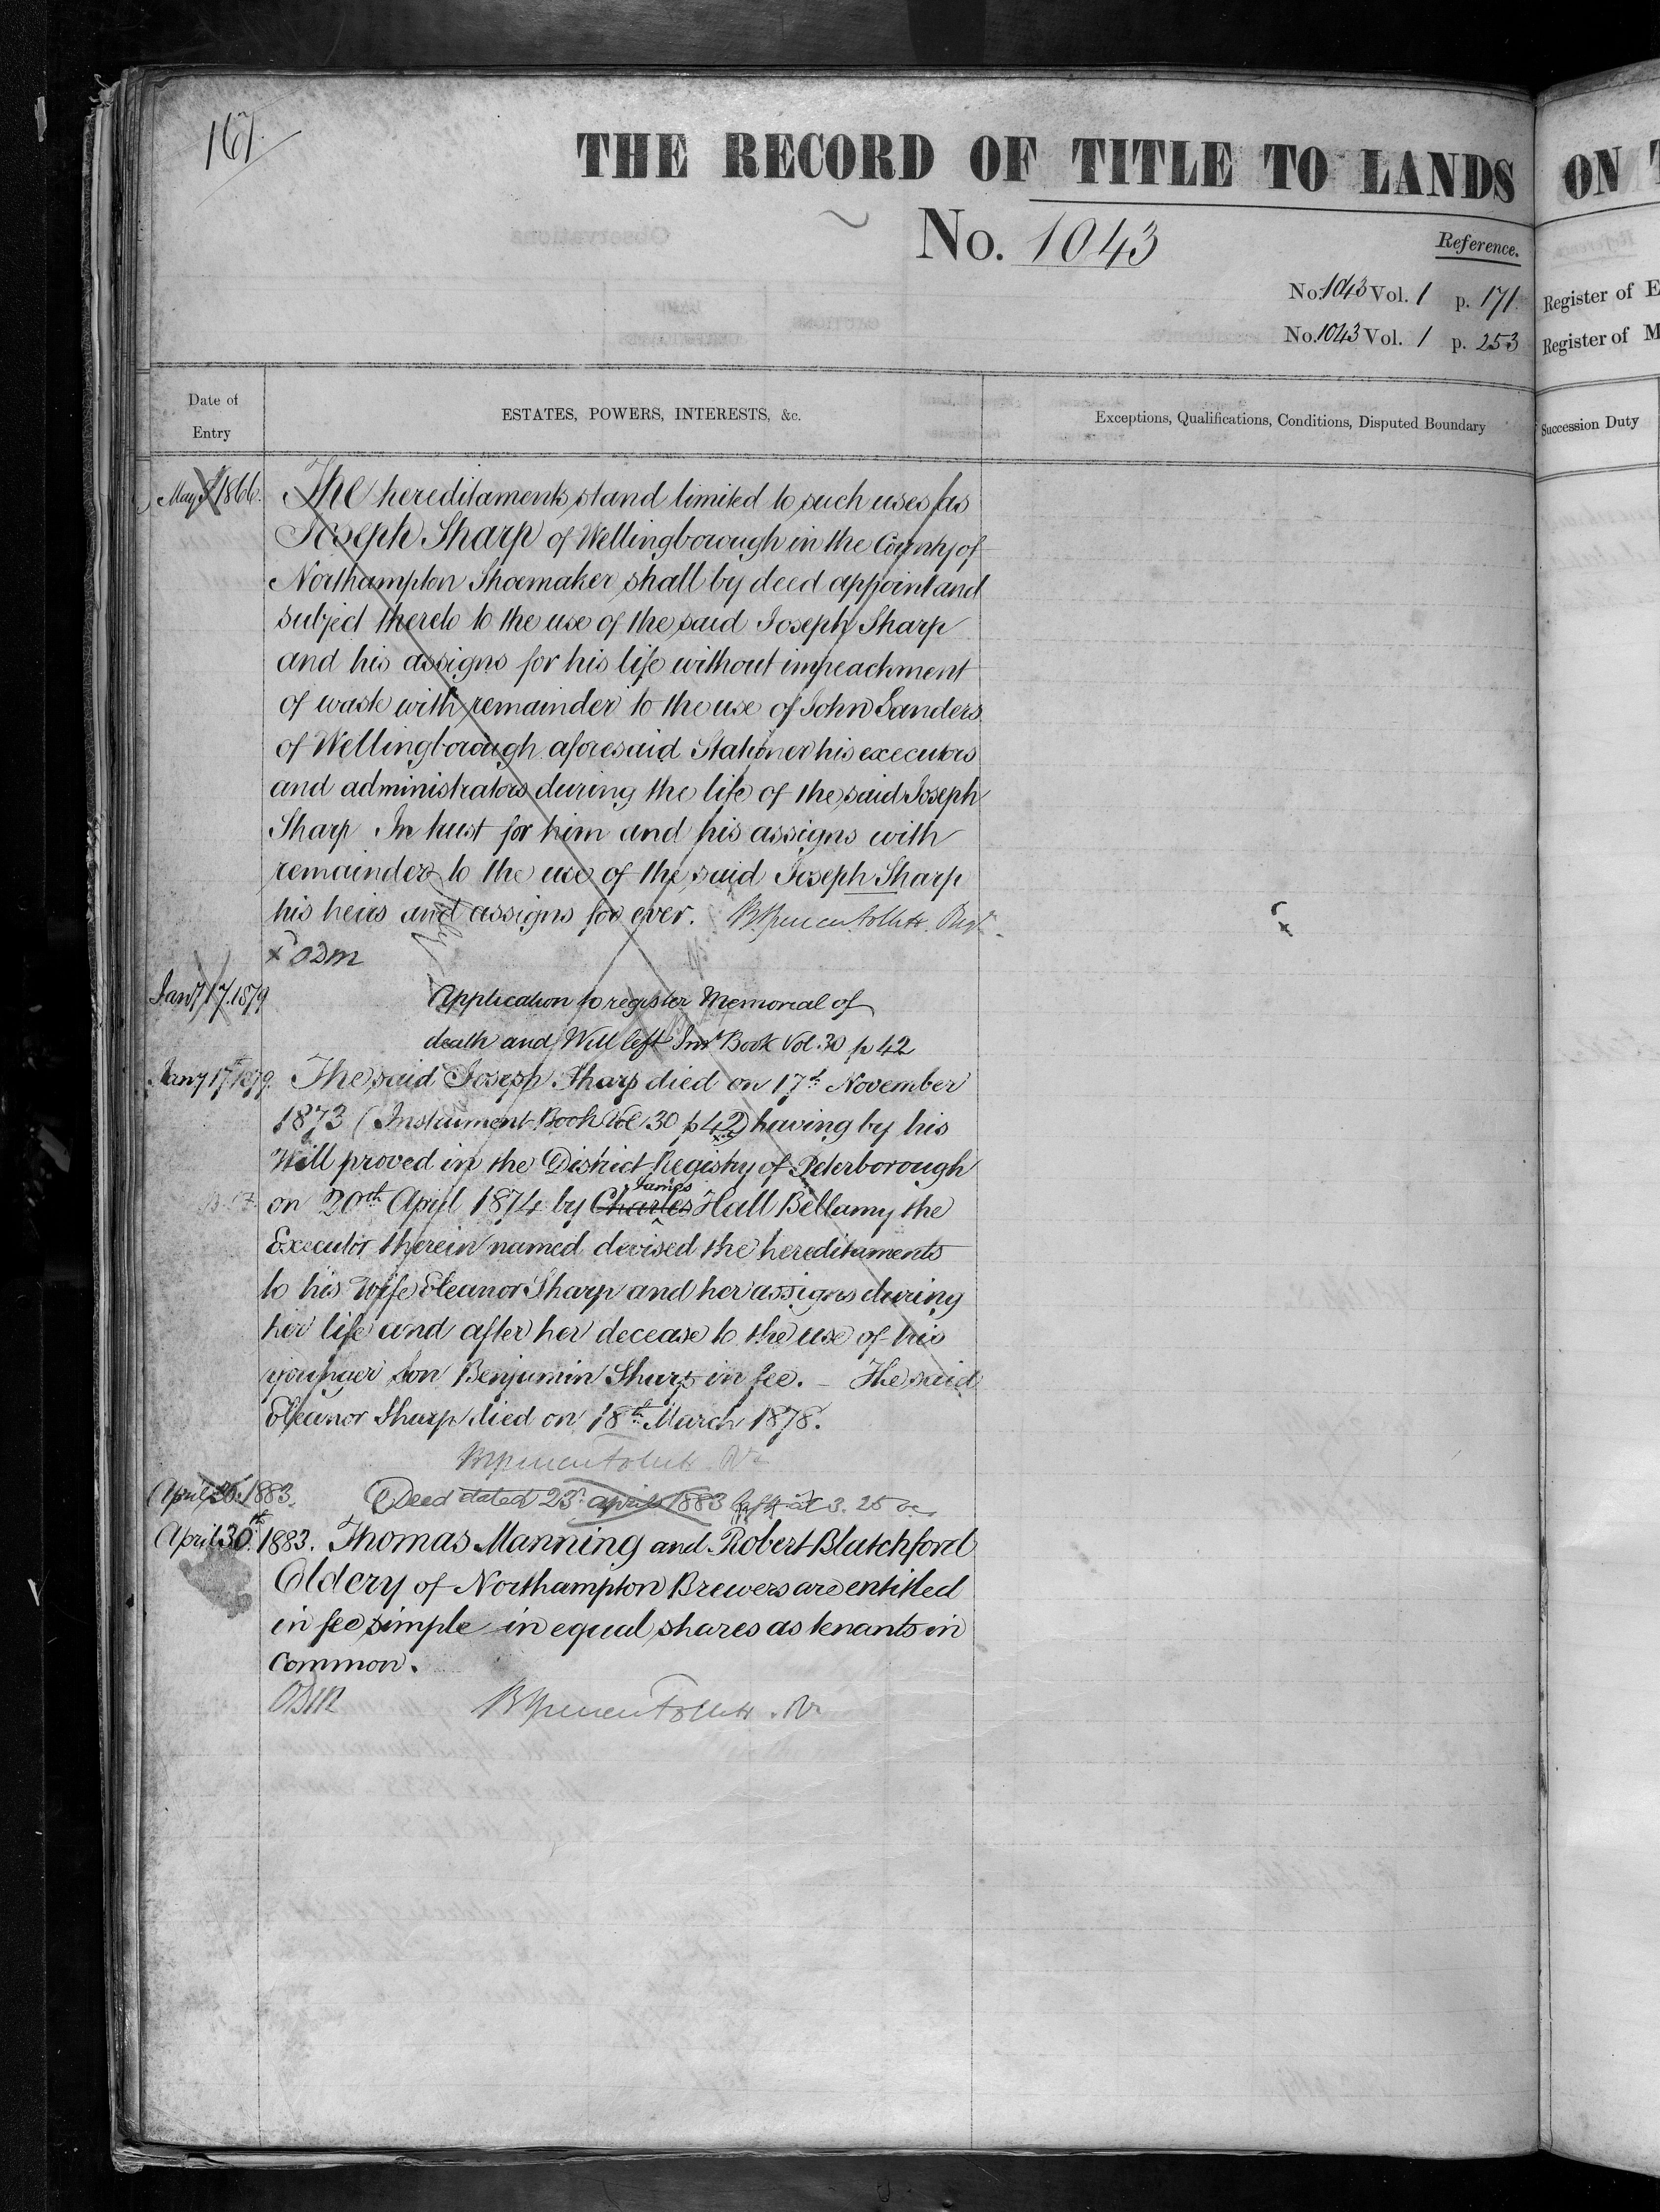 167.
THE RECORD OF TITLE TO LANDS ON
No. 1043
Reference.
No. 1043 Vol. 1 p. 171. Register of E
No. 1043 Vol. 1 p. 253 Register of M
Date of Entry
ESTATES, POWERS, INTERESTS, &c.
Exceptions, Qualifications, Conditions, Disputed Boundary
Succession Duty
May 1866. The hereditaments stand limited to such uses as
Joseph Sharp of Wellingborough in the County of
Northampton Shoemaker shall by deed appoint and
subject thereto to the use of the said Joseph Sharp
and his assigns for his life without impeachment
of waste with remainder to the use of John Sanders
of Wellingborough aforesaid Stationer his executors
and administrators during the life of the said Joseph
Sharp In trust for him and his assigns with
remainder to the use of the said Joseph Sharp
his heirs and assigns for ever.
ODM
Jany 17. 1879 Application to register Memorial of
death and Will left Inst Book Vol. 30 p 42
Jany 17th 1879. The said Joseph Sharp died on 17th November
1873 (Instrument Book Vol 30 p 42) having by his
Will proved in the District Registry of Peterborough
on 20th April 1874 by Charles James Hall Bellamy the
Executor therein named devised the hereditaments
to his Wife Eleanor Sharp and her assigns during
her life and after her decease to the use of his
younger son Benjamin Sharp in fee. - The said
Eleanor Sharp died on 18th March 1878.
April 26. 1883. Deed dated 23d April 1883 left at 3. 25
April 30th 1883. Thomas Manning and Robert Blatchford
Oldery of Northampton Brewers are entitled
in fee simple in equal shares as tenants in
common.
ODM